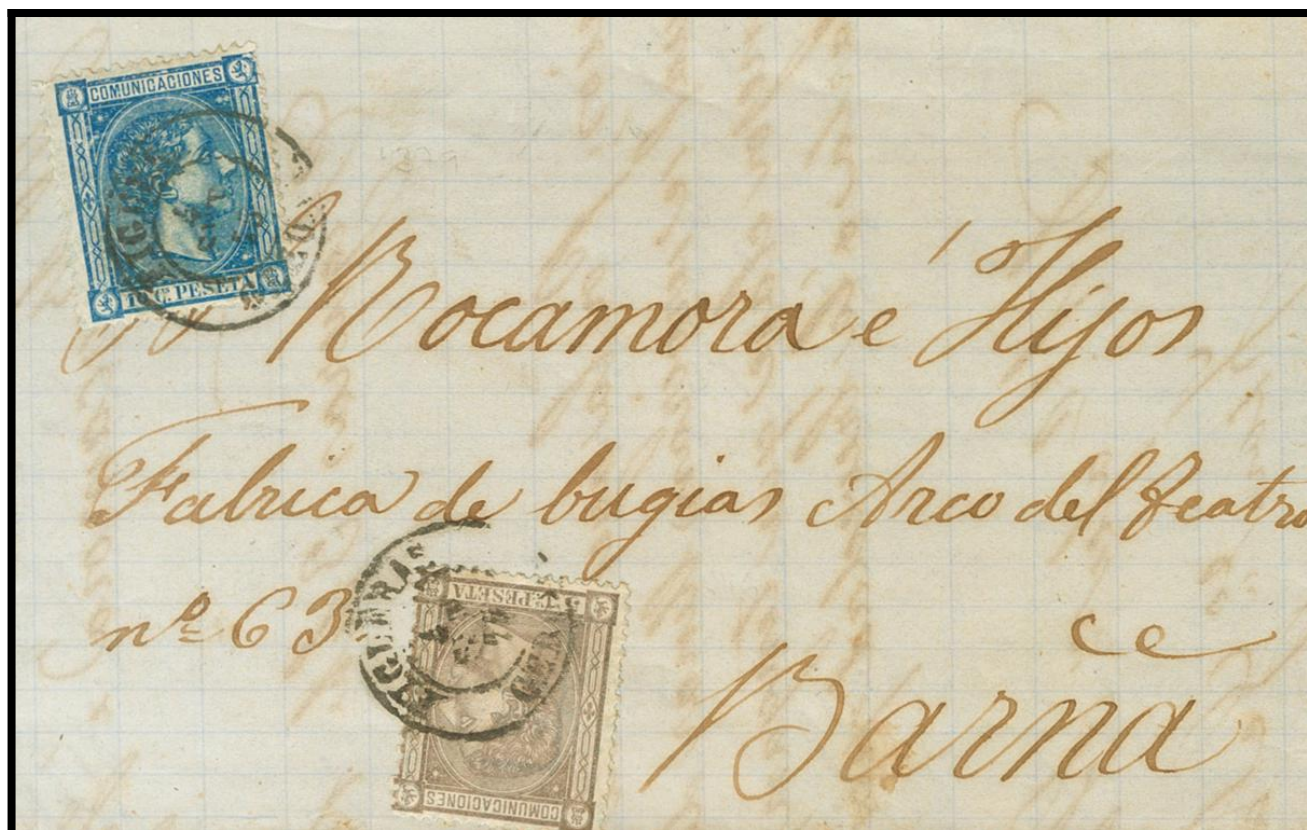 COMUNICACIONES
10 Cs PESETA
Rocamora é Hijos
Fabrica de bugias Arco del Teatro
nº 63
Barna
5 Cs PESETA
COMUNICACIONES